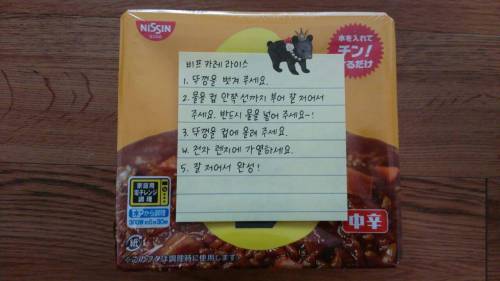 NISSIN
水を入れて
チン!
するだけ
비프 카레 라이스
1. 뚜껑을 벗겨 주세요.
2. 물을 컵 안쪽 선까지 부어 잘 저어서
주세요. 반드시 물을 넣어 주세요~!
3. 뚜껑을 컵에 올려 주세요.
4. 전자 렌지에 가열하세요.
5. 잘 저어서 완성!
家庭用
電子レンジ
調理
水から調理
中辛
紙
※このフタは調理時に使用します。